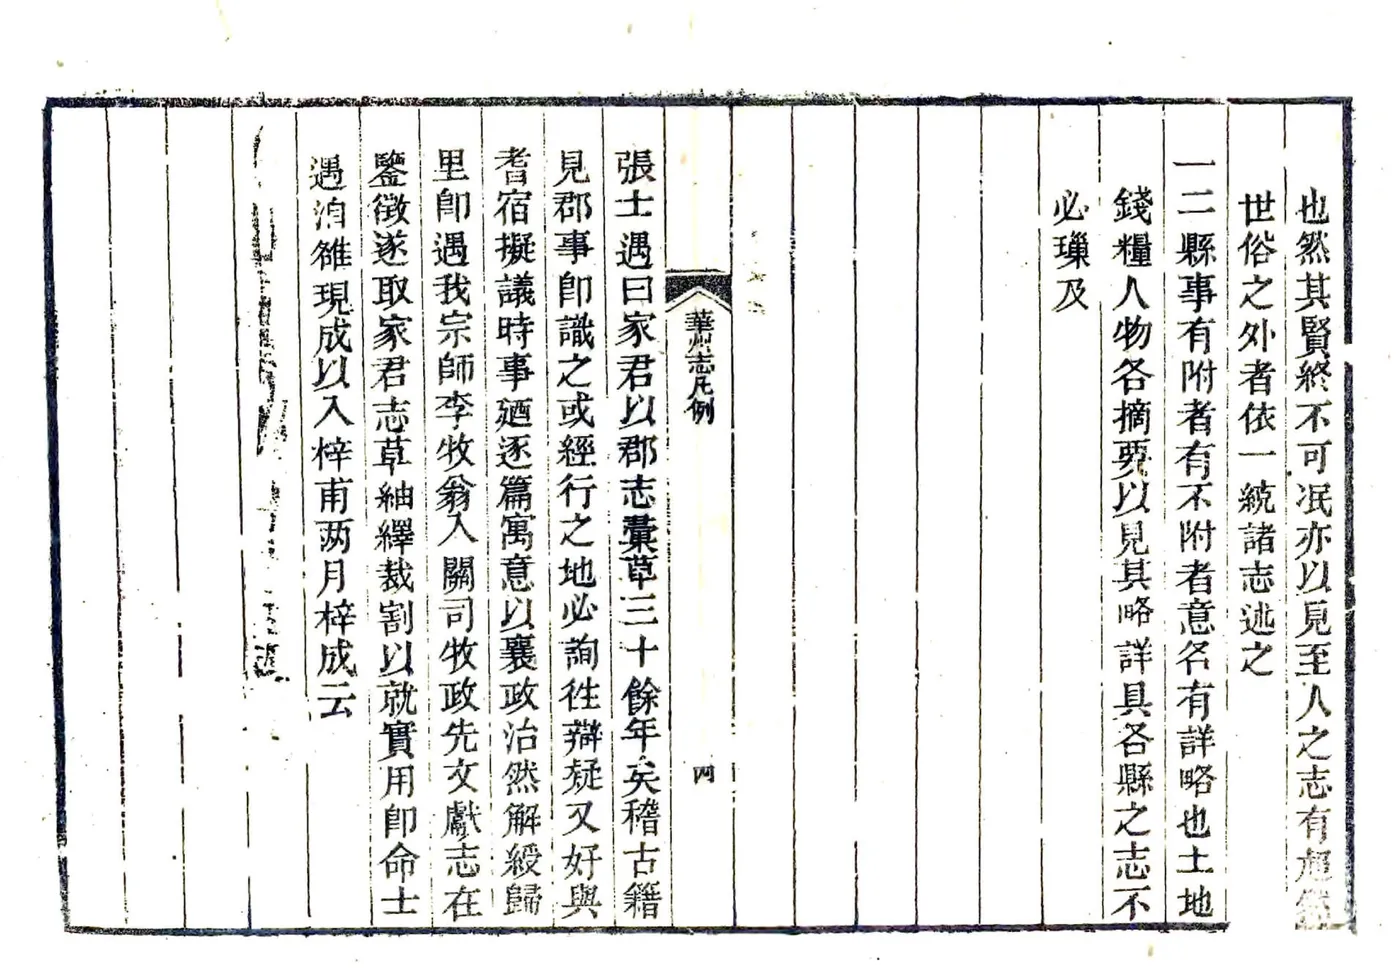 也然其賢終不可泯亦以見至人之志有超然
世俗之外者依一統諸志述之
一二縣事有附者有不附者意名有詳略也土地
錢糧人物各摘要以見其略詳具各縣之志不
必璅及
華州志凡例
四
張士遇曰家君以郡志藳草三十餘年矣稽古籍
見郡事卽識之或經行之地必詢徃辯疑又好與
耆宿擬議時事廼逐篇寓意以襄政治然解綬歸
里卽遇我宗師李牧翁入關司牧政先文獻志在
鑒徵遂取家君志草紬繹裁割以就實用卽命士
遇洎雒現成以入梓甫两月梓成云